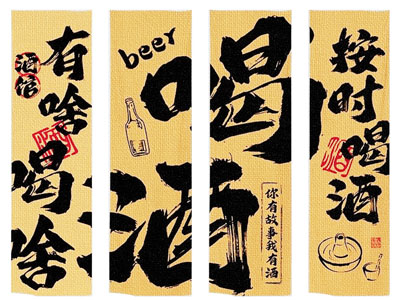 酒馆
有啥
喝啥
beer
喝
酒
你有故事我有酒
按时喝酒
酒